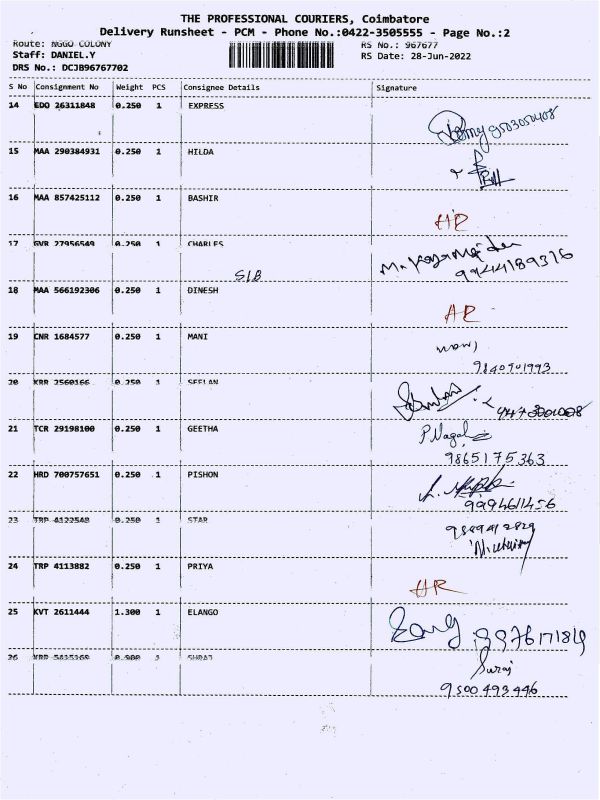 THE PROFESSIONAL COURIERS, Coimbatore
Delivery Runsheet - PCM - Phone No.:0422-3505555 - Page No.:2
Route: NGGO COLONY RS No.: 967677
Staff: DANIEL.Y RS Date: 28-Jun-2022
DRS No.: DCJB96767702
S No Consignment No Weight PCS Consignee Details Signature
14 EDO 26311848 0.250 1 EXPRESS
15 MAA 290384931 0.250 1 HILDA
16 MAA 857425112 0.250 1 BASHIR
17 GVR 27956549 0.250 1 CHARLES
SIB 9944189376
18 MAA 566192306 0.250 1 DINESH
19 CNR 1684577 0.250 1 MANI
mani
9840901993
20 KRR 2560166 0.250 1 SEELAN
21 TCR 29198100 0.250 1 GEETHA
P.Nagal
9865175363
22 HRD 700757651 0.250 1 PISHON
9994611456
23 TRP 4122548 0.250 1 STAR
24 TRP 4113882 0.250 1 PRIYA
HR
25 KVT 2611444 1.300 1 ELANGO
26 1 SURAJ
Suraj
9500493446